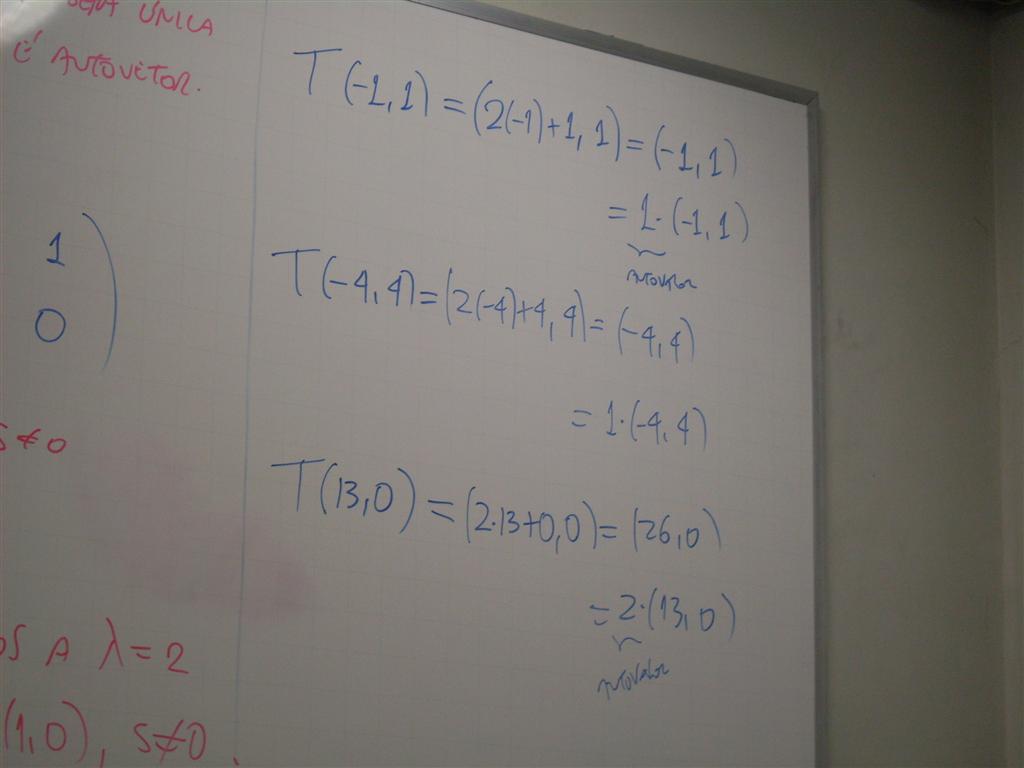 SEJA ÚNICA
É AUTOVETOR.
1
0
S≠0
OS A λ=2
(1,0), S≠0.
T(-1,1)=(2(-1)+1,1)=(-1,1)
=1·(-1,1)
AUTOVALOR
T(-4,4)=(2(-4)+4,4)=(-4,4)
=1·(-4,4)
T(13,0)=(2·13+0,0)=(26,0)
=2·(13,0)
AUTOVALOR